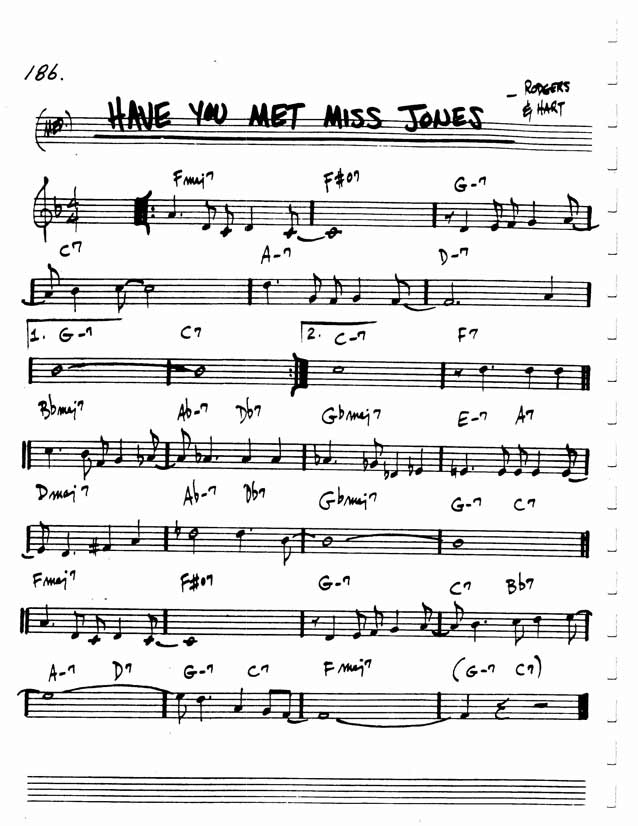 186.
HAVE YOU MET MISS JONES
– RODGERS
& HART
(MED)
Fmaj7 F#o7 G-7
C7 A-7 D-7
1. G-7 C7 2. C-7 F7
Bbmaj7 Ab-7 Db7 Gbmaj7 E-7 A7
Dmaj7 Ab-7 Db7 Gbmaj7 G-7 C7
Fmaj7 F#o7 G-7 C7 Bb7
A-7 D7 G-7 C7 Fmaj7 (G-7 C7)